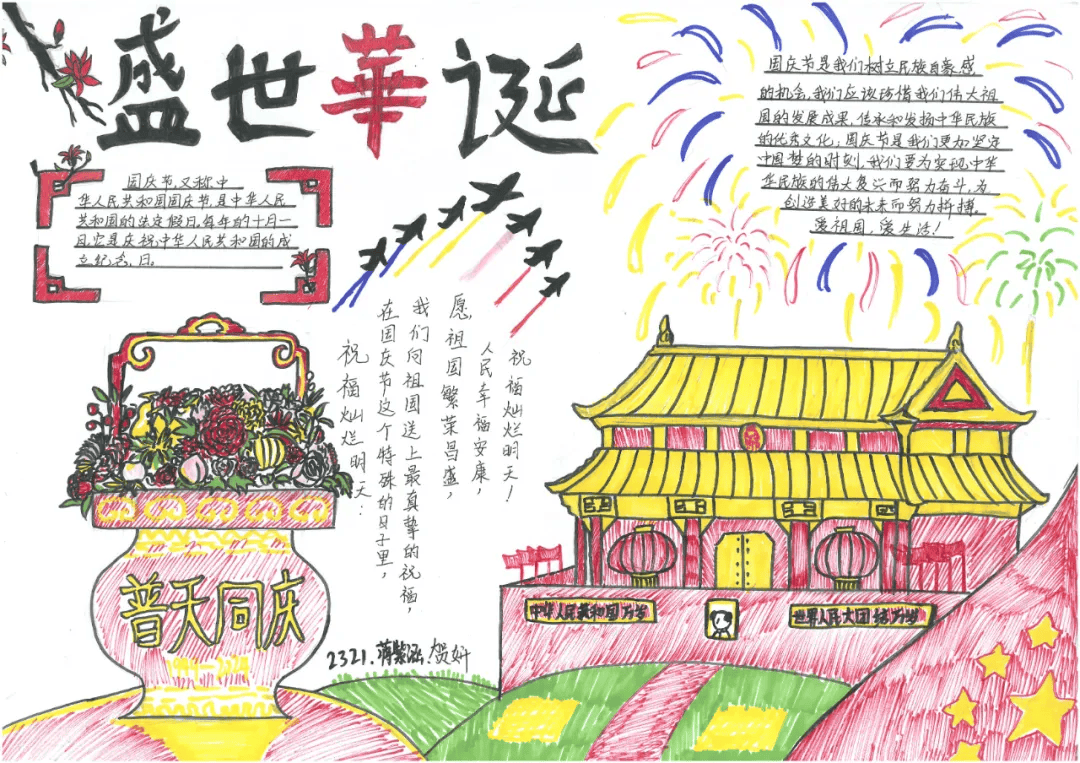 盛世華诞
国庆节,又称中
华人民共和国国庆节,是中华人民
共和国的法定假日,每年的十月一
日,它是庆祝中华人民共和国的成
立纪念日。
国庆节是我们树立民族自豪感
的机会,我们应该珍惜我们伟大祖
国的发展成果,传承和发扬中华民族
的优秀文化;国庆节是我们更加坚定
中国梦的时刻,我们要为实现中华
华民族的伟大复兴而努力奋斗,为
创造美好的未来而努力拼搏。
爱祖国,爱生活!
祝福灿烂明天:
在国庆节这个特殊的日子里,
我们向祖国送上最真挚的祝福,
愿祖国繁荣昌盛,
人民幸福安康,
祝福灿烂明天!
普天同庆
1949—2024
中华人民共和国万岁
世界人民大团结万岁
2321.蒋紫涵.贺妍